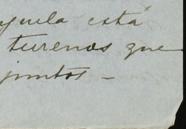 yuela está
turenos que
juntos —